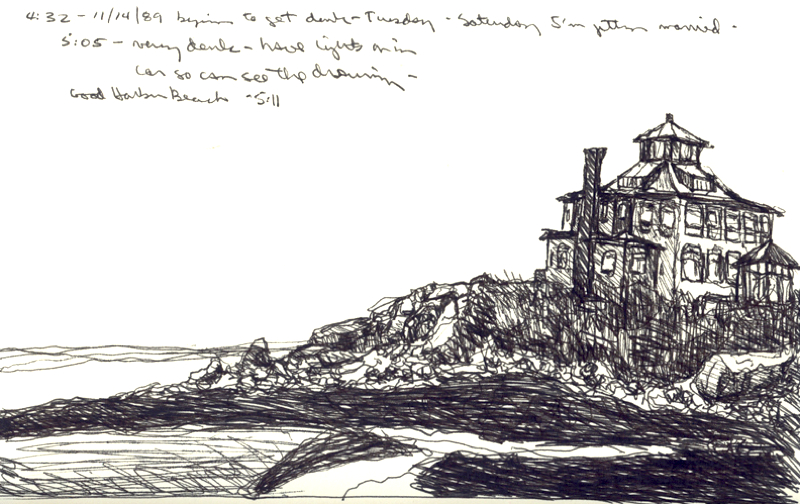 4:32 - 11/14/89 begins to get dark - Tuesday - Saturday I'm getting married -
5:05 - very dark - have lights on in
car so can see the drawing -
Good Harbor Beach - 5:11